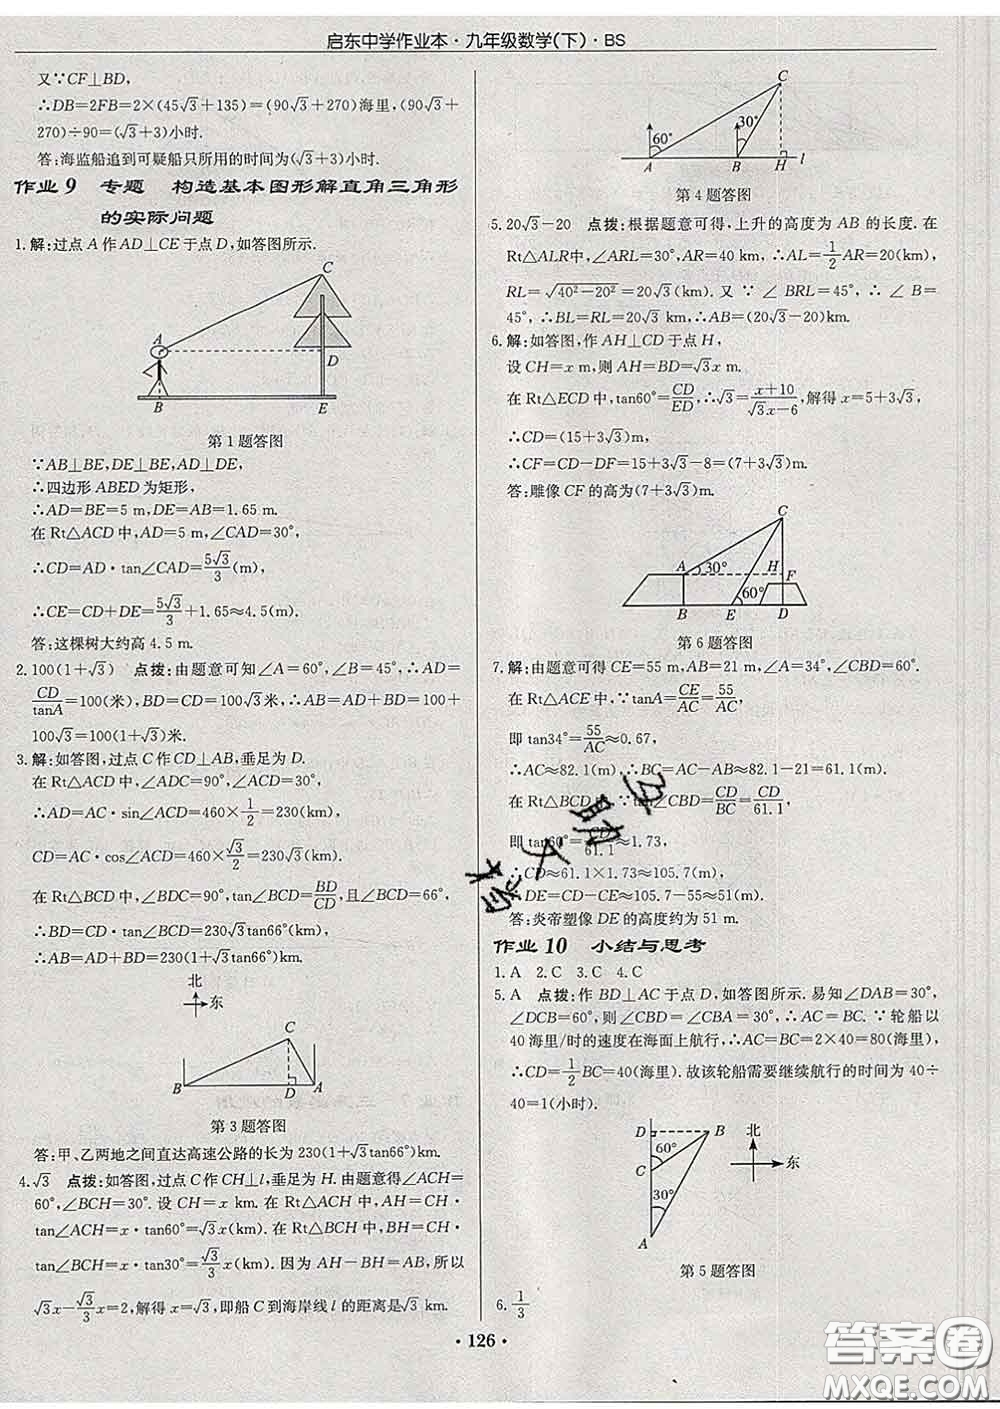 启东中学作业本·九年级数学(下)·BS
又∵CF⊥BD,
∴DB=2FB=2×(45√3+135)=(90√3+270)海里,(90√3+
270)÷90=(√3+3)小时.
答:海监船追到可疑船只所用的时间为(√3+3)小时.
作业9 专题 构造基本图形解直角三角形
的实际问题
1.解:过点A作AD⊥CE于点D,如答图所示.
C
A
D
B E
第1题答图
∵AB⊥BE,DE⊥BE,AD⊥DE,
∴四边形ABED为矩形,
∴AD=BE=5 m,DE=AB=1.65 m.
在Rt△ACD中,AD=5 m,∠CAD=30°,
∴CD=AD·tan∠CAD=5√3/3(m),
∴CE=CD+DE=5√3/3+1.65≈4.5(m).
答:这棵树大约高4.5 m.
2.100(1+√3) 点拨:由题意可知∠A=60°,∠B=45°,∴AD=
CD/tanA=100(米),BD=CD=100√3米,∴AB=AD+BD=100+
100√3=100(1+√3)米.
3.解:如答图,过点C作CD⊥AB,垂足为D.
在Rt△ACD中,∠ADC=90°,∠ACD=30°,
∴AD=AC·sin∠ACD=460×1/2=230(km),
CD=AC·cos∠ACD=460×√3/2=230√3(km).
在Rt△BCD中,∠BDC=90°,tan∠BCD=BD/CD,且∠BCD=66°,
∴BD=CD·tan∠BCD=230√3tan66°(km),
∴AB=AD+BD=230+230√3tan66°=230(1+√3tan66°)km.
北
东
C
B D A
第3题答图
答:甲、乙两地之间直达高速公路的长为230(1+√3tan66°)km.
4.√3 点拨:如答图,过点C作CH⊥l,垂足为H.由题意得∠ACH=
60°,∠BCH=30°.设CH=x km.在Rt△ACH中,AH=CH·
tan∠ACH=x·tan60°=√3x(km).在Rt△BCH中,BH=CH·
tan∠BCH=x·tan30°=√3/3x(km).因为AH-BH=AB,所以
√3x-√3/3x=2,解得x=√3,即船C到海岸线l的距离是√3 km.
C
60° 30°
A B H l
第4题答图
5.20√3-20 点拨:根据题意可得,上升的高度为AB的长度.在
Rt△ALR中,∠ARL=30°,AR=40 km,∴AL=1/2AR=20(km),
RL=√40²-20²=20√3(km).又∵∠BRL=45°,∴∠B=
45°,∴BL=RL=20√3(km),∴AB=(20√3-20)km.
6.解:如答图,作AH⊥CD于点H,
设CH=x m,则AH=BD=√3x m.
在Rt△ECD中,tan60°=CD/ED,∴√3=x+10/√3x-6,解得x=5+3√3,
∴CD=(15+3√3)m,
∴CF=CD-DF=15+3√3-8=(7+3√3)m.
答:雕像CF的高为(7+3√3)m.
C
A 30° H F
60°
B E D
第6题答图
7.解:由题意可得CE=55 m,AB=21 m,∠A=34°,∠CBD=60°.
在Rt△ACE中,∵tanA=CE/AC=55/AC,
即tan34°=55/AC≈0.67,
∴AC≈82.1(m),∴BC=AC-AB≈82.1-21=61.1(m).
在Rt△BCD中,∵tan∠CBD=CD/BC=CD/61.1,
即tan60°=CD/61.1≈1.73,
∴CD≈61.1×1.73≈105.7(m),
∴DE=CD-CE≈105.7-55≈51(m).
答:炎帝塑像DE的高度约为51 m.
作业10 小结与思考
1.A 2.C 3.C 4.C
5.A 点拨:作BD⊥AC于点D,如答图所示.易知∠DAB=30°,
∠DCB=60°,则∠CBD=∠CBA=30°,∴AC=BC.∵轮船以
40海里/时的速度在海面上航行,∴AC=BC=2×40=80(海里),
∴CD=1/2BC=40(海里).故该轮船需要继续航行的时间为40÷
40=1(小时).
D B
60°
C
30°
A
北
东
第5题答图
6.1/3
·126·
答案圈
MXQE.COM